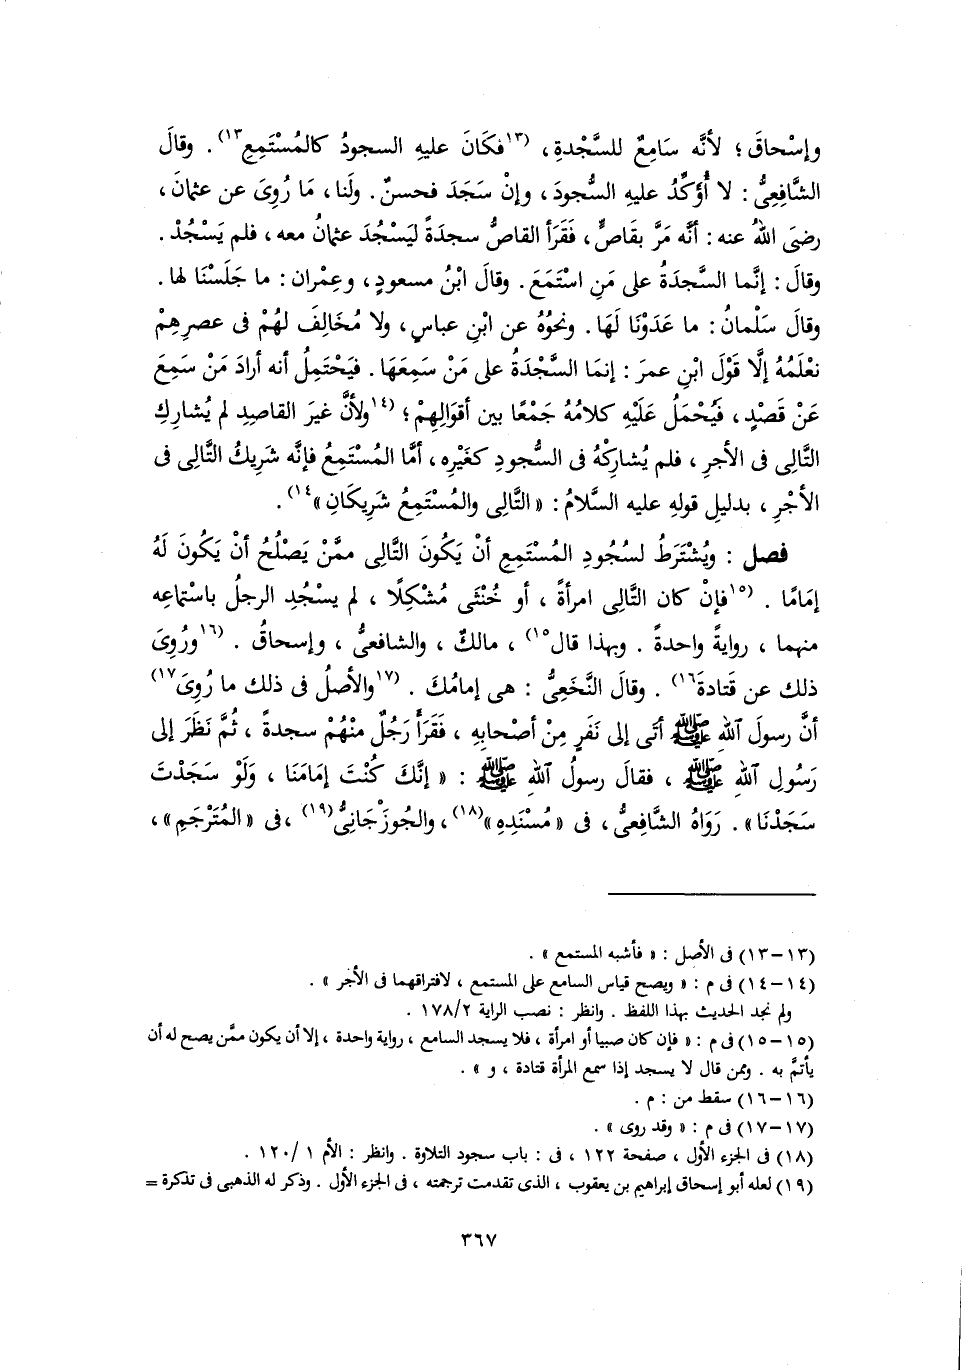 وإسْحاقَ ؛ لأنَّه سَامِعٌ للسَّجْدةِ ، (١٣فكَانَ عليهِ السجودُ كالمُسْتَمِعِ١٣) . وقالَ
الشَّافِعِىُّ : لا أُؤكِّدُ عليهِ السُّجودَ ، وإنْ سَجَدَ فحسنٌ . ولَنا ، مَا رُوِىَ عن عثمانَ ،
رضىَ اللهُ عنه : أنَّه مَرَّ بقَاصٍّ ، فَقَرَأ القاصُّ سجدَةً ليَسْجُدَ عثمانُ معه ، فلم يَسْجُدْ .
وقالَ : إنَّما السَّجدَةُ على مَنِ اسْتَمَعَ . وقالَ ابْنُ مسعودٍ ، وعِمْران : ما جَلَسْنَا لها .
وقالَ سَلْمانُ : ما عَدَوْنَا لَهَا . ونحوُهُ عن ابْنِ عباسٍ ، ولا مُخَالِفَ لهُمْ فى عصرِهِمْ
نعْلَمُهُ إلَّا قَوْلَ ابْنِ عمرَ : إنمَا السَّجْدَةُ على مَنْ سَمِعَهَا . فيَحْتَمِلُ أنه أرادَ مَنْ سَمِعَ
عَنْ قَصْدٍ ، فَيُحْمَلُ عَلَيْهِ كلامُهُ جَمْعًا بين أقوَالِهِمْ ؛ (١٤ولأنَّ غيرَ القاصِدِ لم يُشارِكِ
التَّالِىَ فى الأجرِ ، فلم يُشارِكْهُ فى السُّجودِ كغَيْرِه ، أمَّا المُسْتَمِعُ فإنَّه شَرِيكُ التَّالِى فى
الأجْرِ ، بدليلِ قولِهِ عليه السَّلامُ : « التَّالِى والمُسْتَمِعُ شَرِيكَانِ »١٤) .
فصل : ويُشْتَرَطُ لسُجُودِ المُسْتَمِعِ أنْ يَكُونَ التَّالِى ممَّنْ يَصْلُحُ أنْ يَكُونَ لَهُ
إمَامًا . (١٥فإنْ كان التَّالِى امرأةً ، أو خُنْثَى مُشْكِلًا ، لم يسْجُدِ الرجلُ باسْتماعِه
منهما ، روايةً واحدةً . وبهذا قال١٥) ، مالكٌ ، والشافعىُّ ، وإسحاقُ . (١٦ورُوِىَ
ذلك عن قَتادةَ١٦) . وقالَ النَّخَعِىُّ : هى إمامُكَ . (١٧والأصلُ فى ذلك ما رُوِىَ١٧)
أنَّ رسولَ اللهِ ﷺ أتَى إلى نَفَرٍ مِنْ أصْحابِهِ ، فَقَرَأَ رَجُلٌ منْهُمْ سجدةً ، ثُمَّ نَظَرَ إلى
رَسُولِ اللهِ ﷺ ، فقالَ رسولُ اللهِ ﷺ : « إنَّكَ كُنْتَ إمَامَنَا ، وَلَوْ سَجَدْتَ
سَجَدْنَا » . رَوَاهُ الشَّافِعىُّ ، فى « مُسْنَدِهِ »(١٨) ، والجُوزْجَانِىُّ(١٩) ، فى « المُتَرْجَمِ » ،
(١٣-١٣) فى الأصل : « فأشبه المستمع » .
(١٤-١٤) فى م : « ويصح قياس السامع على المستمع ، لافتراقهما فى الأجر » .
ولم نجد الحديث بهذا اللفظ . وانظر : نصب الراية ١٧٨/٢ .
(١٥-١٥) فى م : « فإن كان صبيا أو امرأة ، فلا يسجد السامع ، رواية واحدة ، إلا أن يكون ممَّن يصح له أن
يأتمَّ به . وممن قال لا يسجد إذا سمع المرأة قتادة ، و » .
(١٦-١٦) سقط من : م .
(١٧-١٧) فى م : « وقد روى » .
(١٨) فى الجزء الأول ، صفحة ١٢٢ ، فى : باب سجود التلاوة . وانظر : الأم ١ /١٢٠ .
(١٩) لعله أبو إسحاق إبراهيم بن يعقوب ، الذى تقدمت ترجمته ، فى الجزء الأول . وذكر له الذهبى فى تذكرة =
٣٦٧